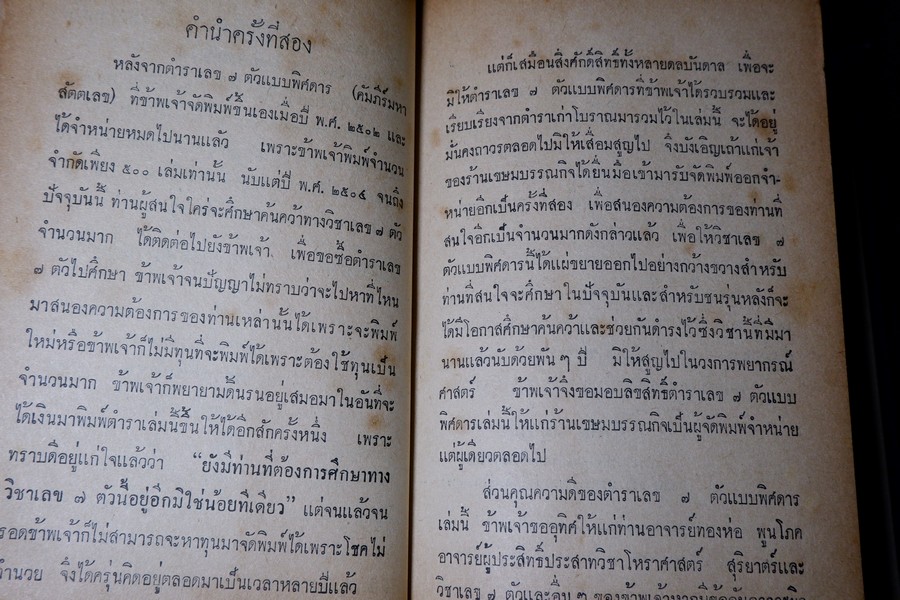 คำนำครั้งที่สอง
หลังจากตำราเลข ๗ ตัวแบบพิศดาร (คัมภีร์มหา
สัตตเลข) ที่ข้าพเจ้าจัดพิมพ์ขึ้นเองเมื่อปี พ.ศ. ๒๕๐๒ และ
ได้จำหน่ายหมดไปนานแล้ว เพราะข้าพเจ้าพิมพ์จำนวน
จำกัดเพียง ๕๐๐ เล่มเท่านั้น นับแต่ปี พ.ศ. ๒๕๐๔ จนถึง
ปัจจุบันนี้ ท่านผู้สนใจใคร่จะศึกษาค้นคว้าทางวิชาเลข ๗ ตัว
จำนวนมาก ได้ติดต่อไปยังข้าพเจ้า เพื่อขอซื้อตำราเลข
๗ ตัวไปศึกษา ข้าพเจ้าจนปัญญาไม่ทราบว่าจะไปหาที่ไหน
มาสนองความต้องการของท่านเหล่านั้นได้เพราะจะพิมพ์
ใหม่หรือข้าพเจ้าก็ไม่มีทุนที่จะพิมพ์ได้เพราะต้องใช้ทุนเป็น
จำนวนมาก ข้าพเจ้าก็พยายามดิ้นรนอยู่เสมอมาในอันที่จะ
ได้เงินมาพิมพ์ตำราเล่มนี้ขึ้นให้ได้อีกสักครั้งหนึ่ง เพราะ
ทราบดีอยู่แก่ใจแล้วว่า "ยังมีท่านที่ต้องการศึกษาทาง
วิชาเลข ๗ ตัวนี้อยู่อีกมิใช่น้อยทีเดียว" แต่จนแล้วจน
รอดข้าพเจ้าก็ไม่สามารถจะหาทุนมาจัดพิมพ์ได้เพราะโชคไม่
อำนวย จึงได้ครุ่นคิดอยู่ตลอดมาเป็นเวลาหลายปีแล้ว
แต่ก็เสมือนสิ่งศักดิ์สิทธิ์ทั้งหลายดลบันดาล เพื่อจะ
มิให้ตำราเลข ๗ ตัวแบบพิศดารที่ข้าพเจ้าได้รวบรวมและ
เรียบเรียงจากตำราเก่าโบราณมารวมไว้ในเล่มนี้ จะได้อยู่
มั่นคงถาวรตลอดไปมิให้เสื่อมสูญไป จึงบังเอิญเถ้าแก่เจ้า
ของร้านเขษมบรรณกิจได้ยื่นมือเข้ามารับจัดพิมพ์ออกจำ-
หน่ายอีกเป็นครั้งที่สอง เพื่อสนองความต้องการของท่านที่
สนใจอีกเป็นจำนวนมากดังกล่าวแล้ว เพื่อให้วิชาเลข ๗
ตัวแบบพิศดารนี้ได้แผ่ขยายออกไปอย่างกว้างขวางสำหรับ
ท่านที่สนใจจะศึกษาในปัจจุบันและสำหรับชนรุ่นหลังก็จะ
ได้มีโอกาสศึกษาค้นคว้าและช่วยกันดำรงไว้ซึ่งวิชานี้ที่มีมา
นานแล้วนับด้วยพัน ๆ ปี มิให้สูญไปในวงการพยากรณ์
ศาสตร์ ข้าพเจ้าจึงขอมอบลิขสิทธิ์ตำราเลข ๗ ตัวแบบ
พิศดารเล่มนี้ให้แก่ร้านเขษมบรรณกิจเป็นผู้จัดพิมพ์จำหน่าย
แต่ผู้เดียวตลอดไป
ส่วนคุณความดีของตำราเลข ๗ ตัวแบบพิศดาร
เล่มนี้ ข้าพเจ้าขออุทิศให้แก่ท่านอาจารย์ทองห่อ พูนโภค
อาจารย์ผู้ประสิทธิ์ประสาทวิชาโหราศาสตร์ สุริยาตร์และ
วิชาเลข ๗ ตัวและอื่น ๆ ของข้าพเจ้า